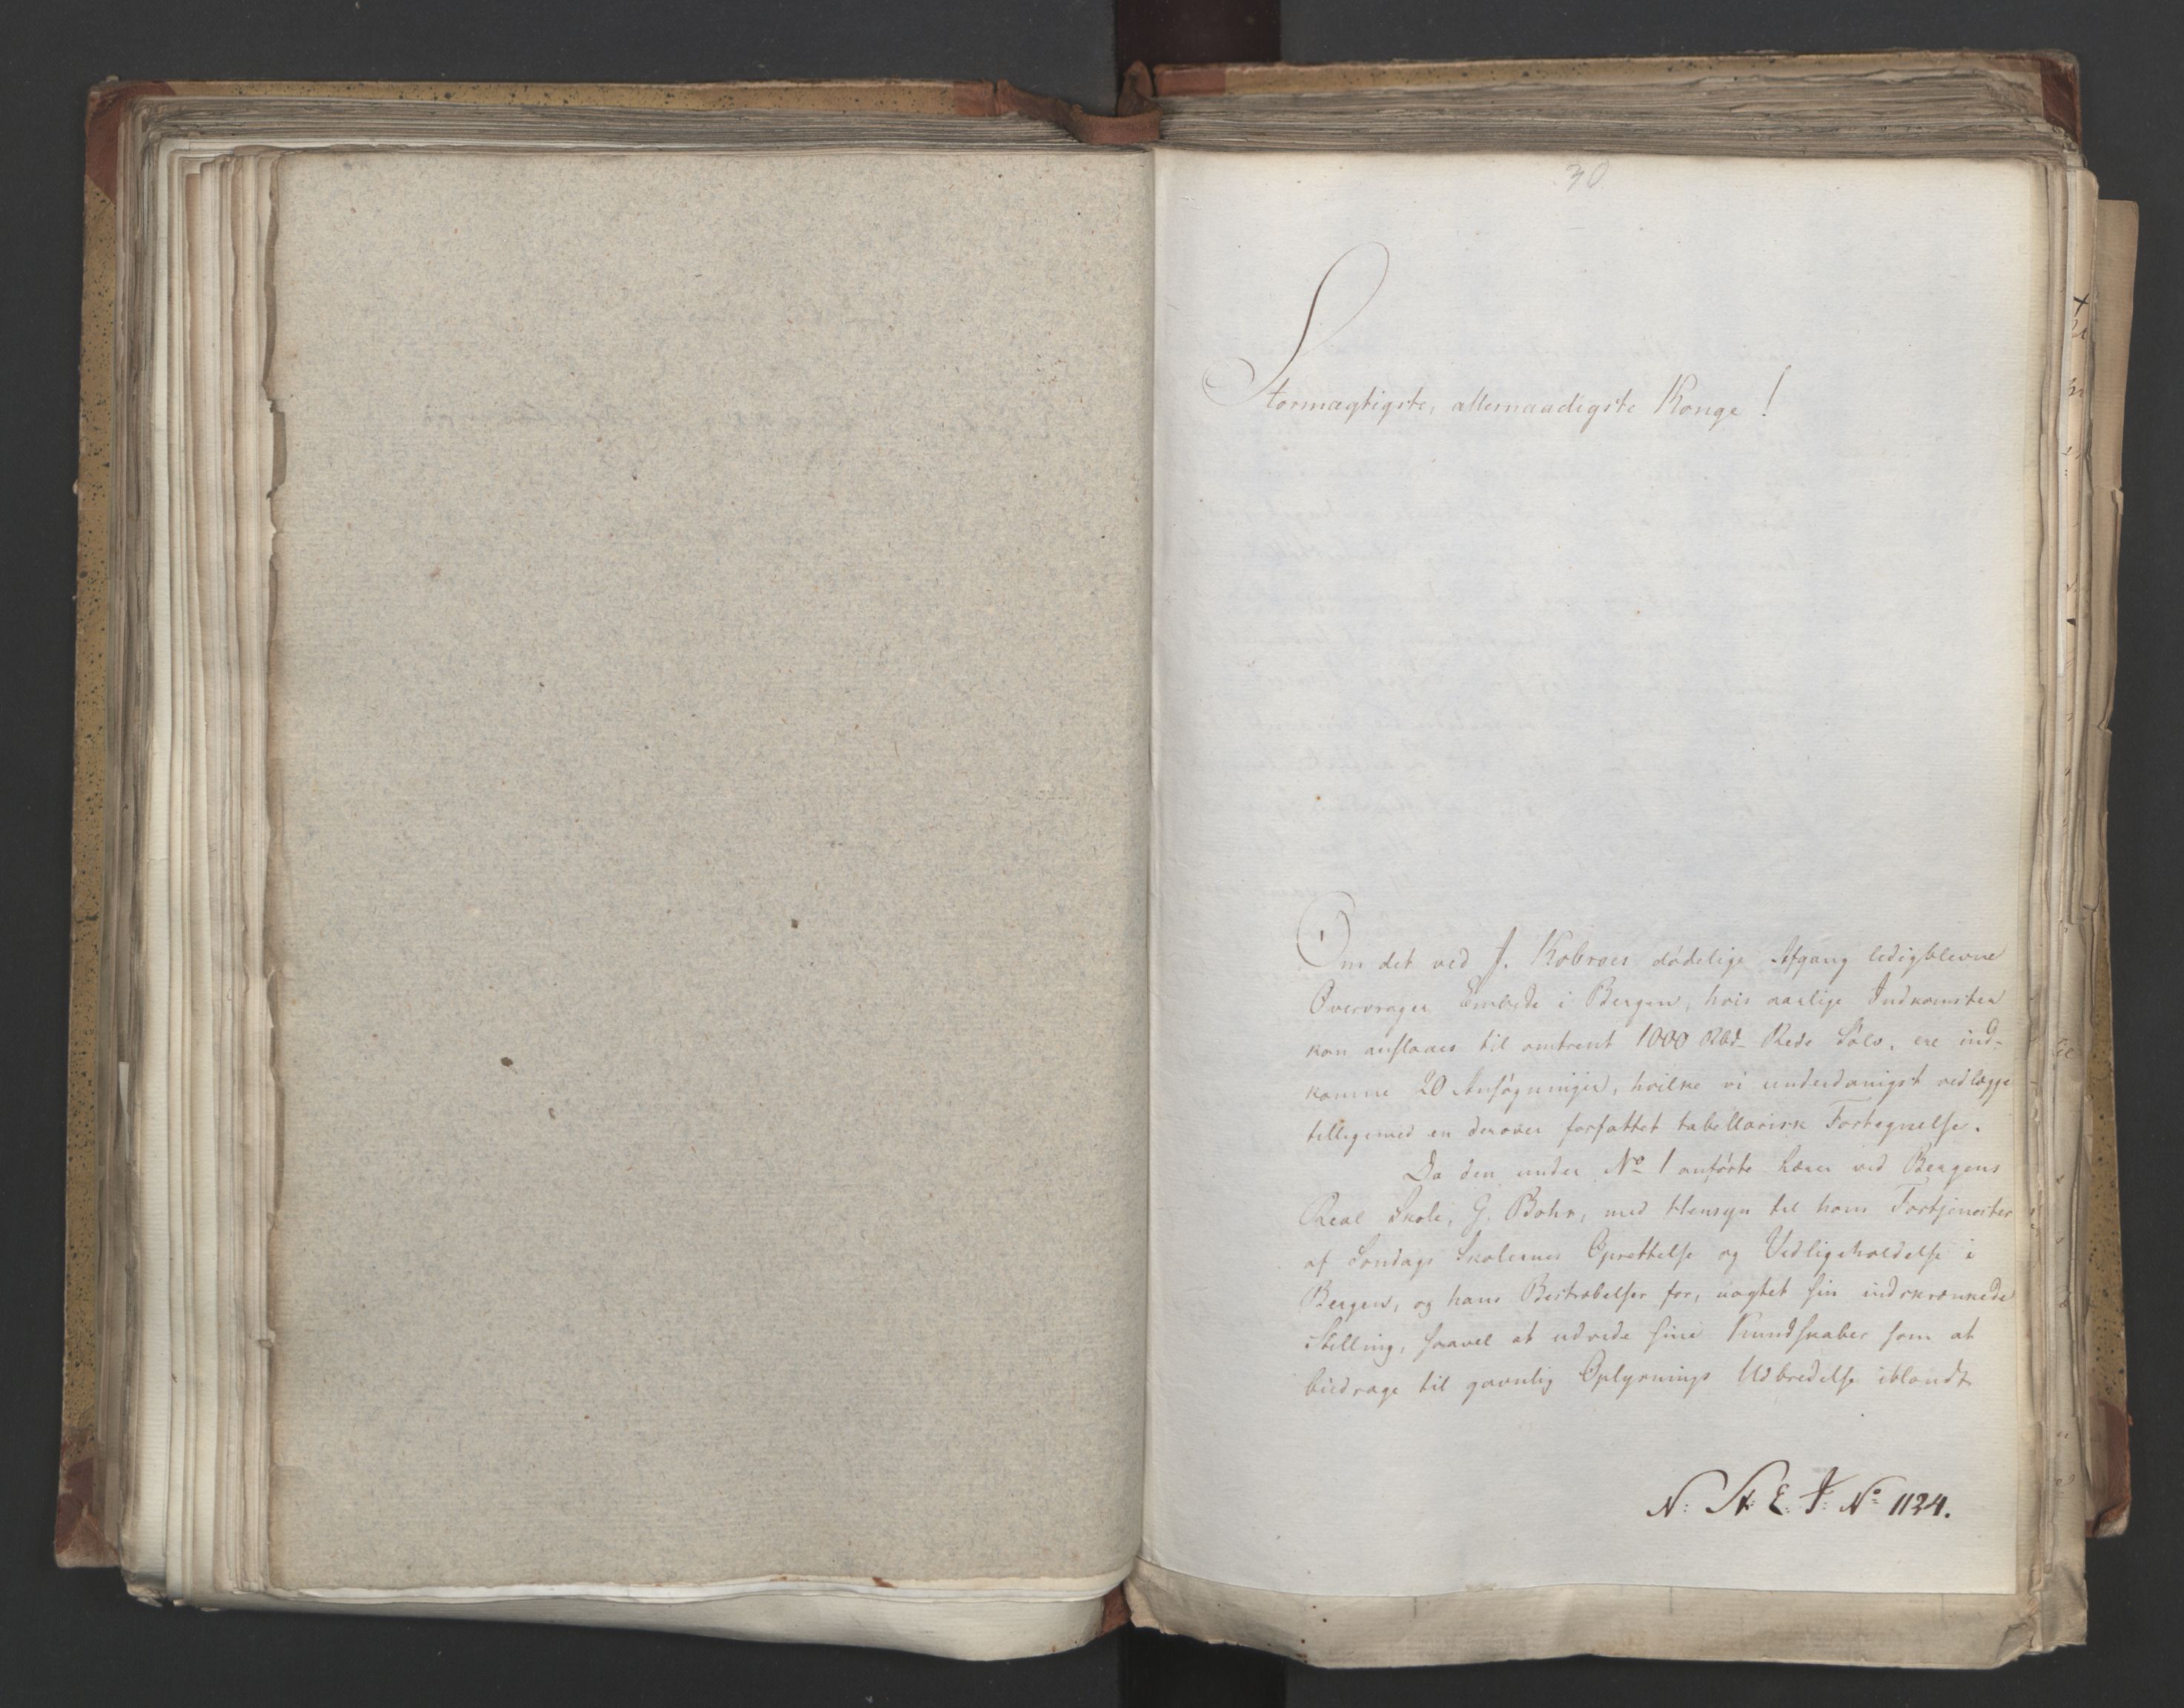 30
Stormægtigste, allernaadigste Konge!
Om det ved J. Kobroes dødelige Afgang ledigblevne
Overvrager Embede i Bergen, hvis aarlige Indkomster
kan anslaaes til omtrent 1000 Rbd. Rede Sølv, ere ind-
komne 20 Ansøgninger, hvilke vi underdanigst vedlægge
tilligemed en derover forfattet tabellarisk Fortegnelse.
Da den under No 1 anførte Lærer ved Bergens
Real Skole, G. Bohr, med Hensyn til hans Fortjenester
af Søndags Skolernes Oprettelse og Vedligeholdelse i
Bergen, og hans Bestræbelser for, uagtet sin indskrænkede
Stilling, saavel at udvide sine Kundskaber som at
bidrage til gavnlig Oplysnings Udbredelse iblandt
N: St. E. J: No 1134.